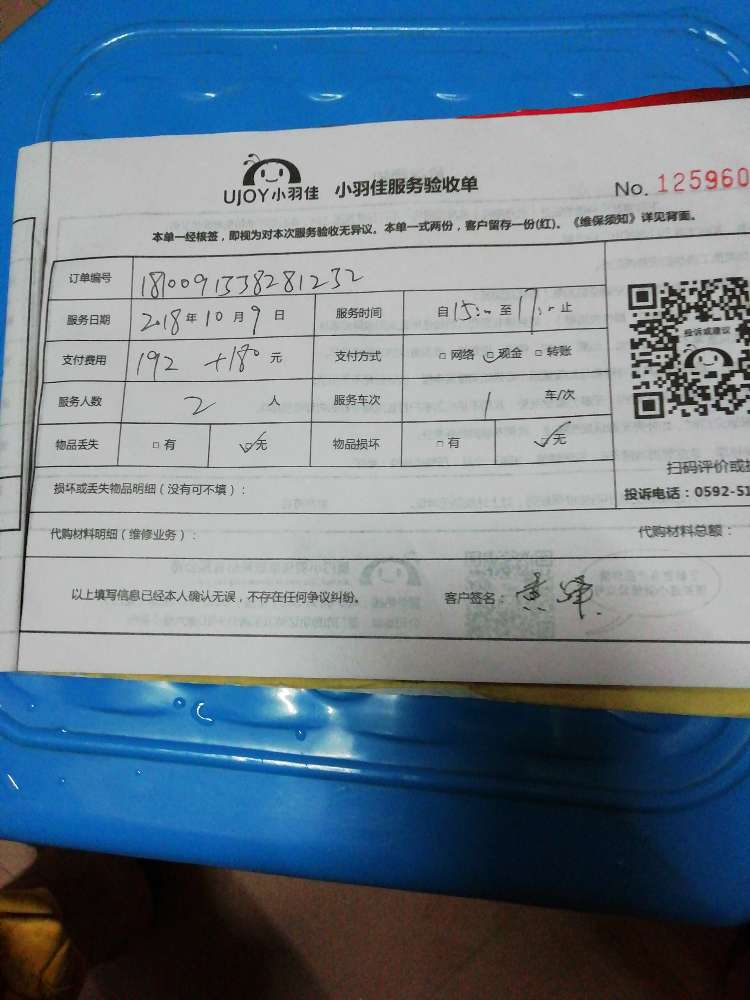 UJOY小羽佳 小羽佳服务验收单 No. 125960
本单一经核签，即视为对本次服务验收无异议。本单一式两份，客户留存一份(红)。《维保须知》详见背面。
订单编号 1810091338281232
服务日期 2018年10月9日 服务时间 自15:00至17:00止
支付费用 192 +180元 支付方式 □网络 ☑现金 □转账
服务人数 2 人 服务车次 1 车/次
物品丢失 □有 ☑无 物品损坏 □有 ☑无
投诉或建议
扫码评价或
损坏或丢失物品明细（没有可不填）：
投诉电话：0592-51
代购材料明细（维修业务）：
代购材料总额：
以上填写信息已经本人确认无误，不存在任何争议纠纷。 客户签名：